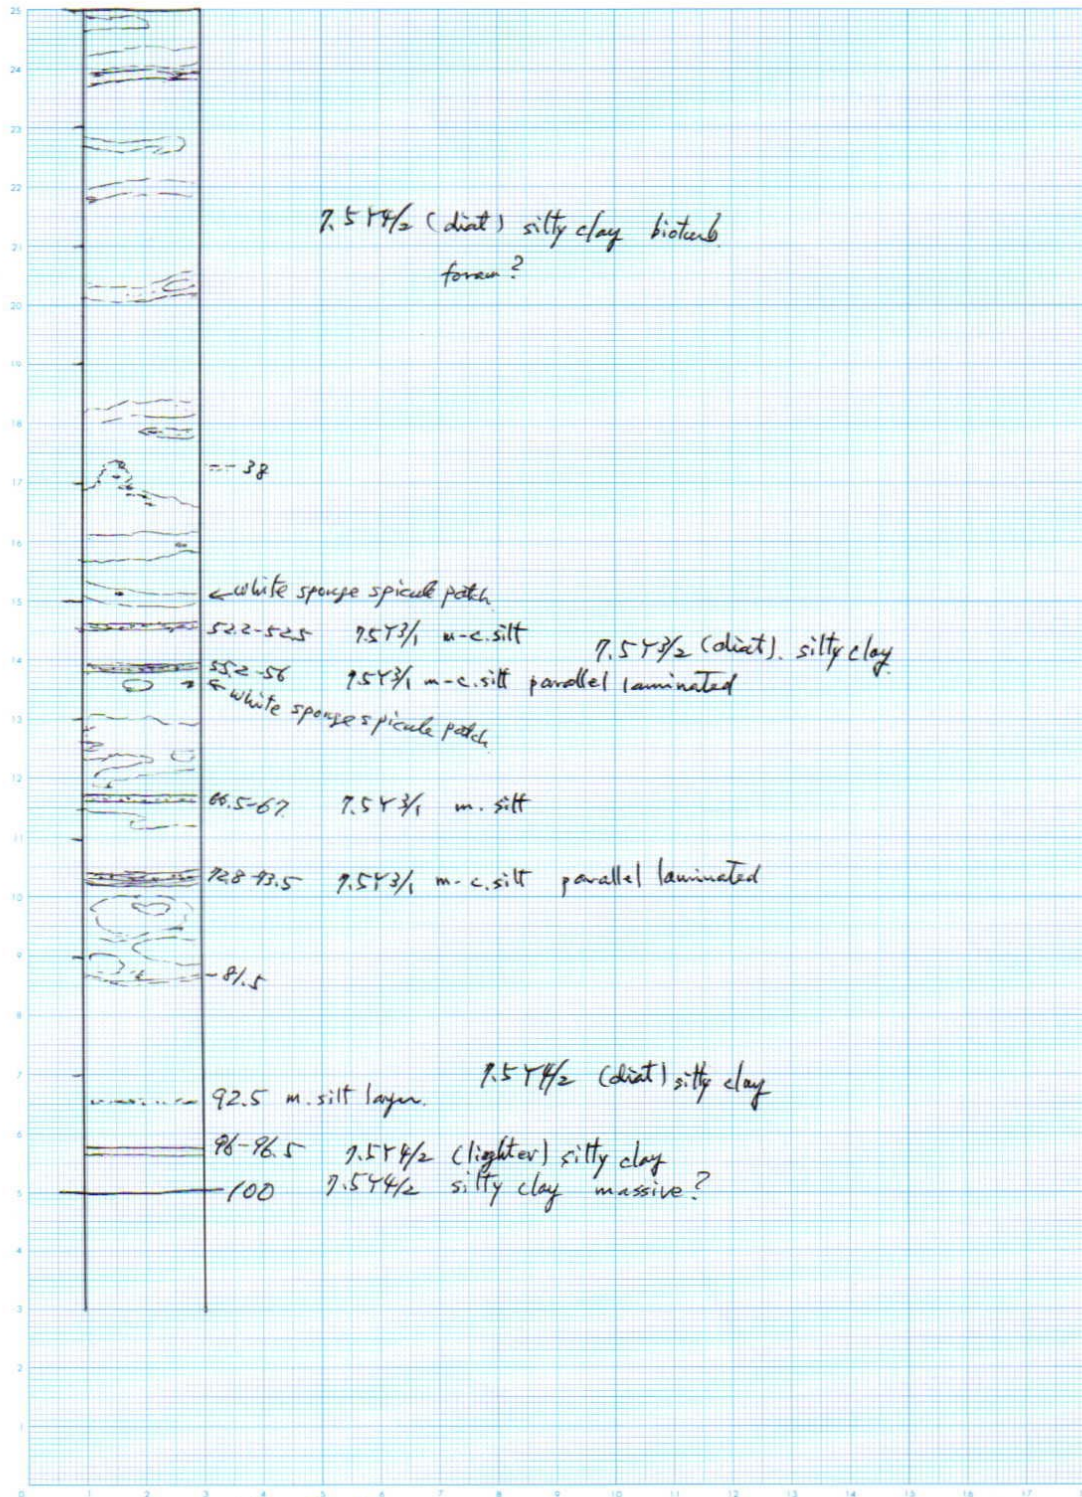 25
24
23
22
7.5Y4/2 (diat) silty clay bioturb
21
foram?
20
19
18
--- 38
17
16
← white sponge spicule patch
15
52.2-52.5 7.5Y3/1 m-c.silt
7.5Y3/2 (diat). silty clay
14
55.2-56 7.5Y3/1 m-c.silt parallel laminated
← white sponge spicule patch
13
12
66.5-67 7.5Y3/1 m. silt
11
72.8-73.5 7.5Y3/1 m-c.silt parallel laminated
10
9
-81.5
8
7
7.5Y4/2 (diat) silty clay
92.5 m. silt layer.
6
96-96.5 7.5Y4/2 (lighter) silty clay
5
-100 7.5Y4/2 silty clay massive?
4
3
2
1
0 1 2 3 4 5 6 7 8 9 10 11 12 13 14 15 16 17